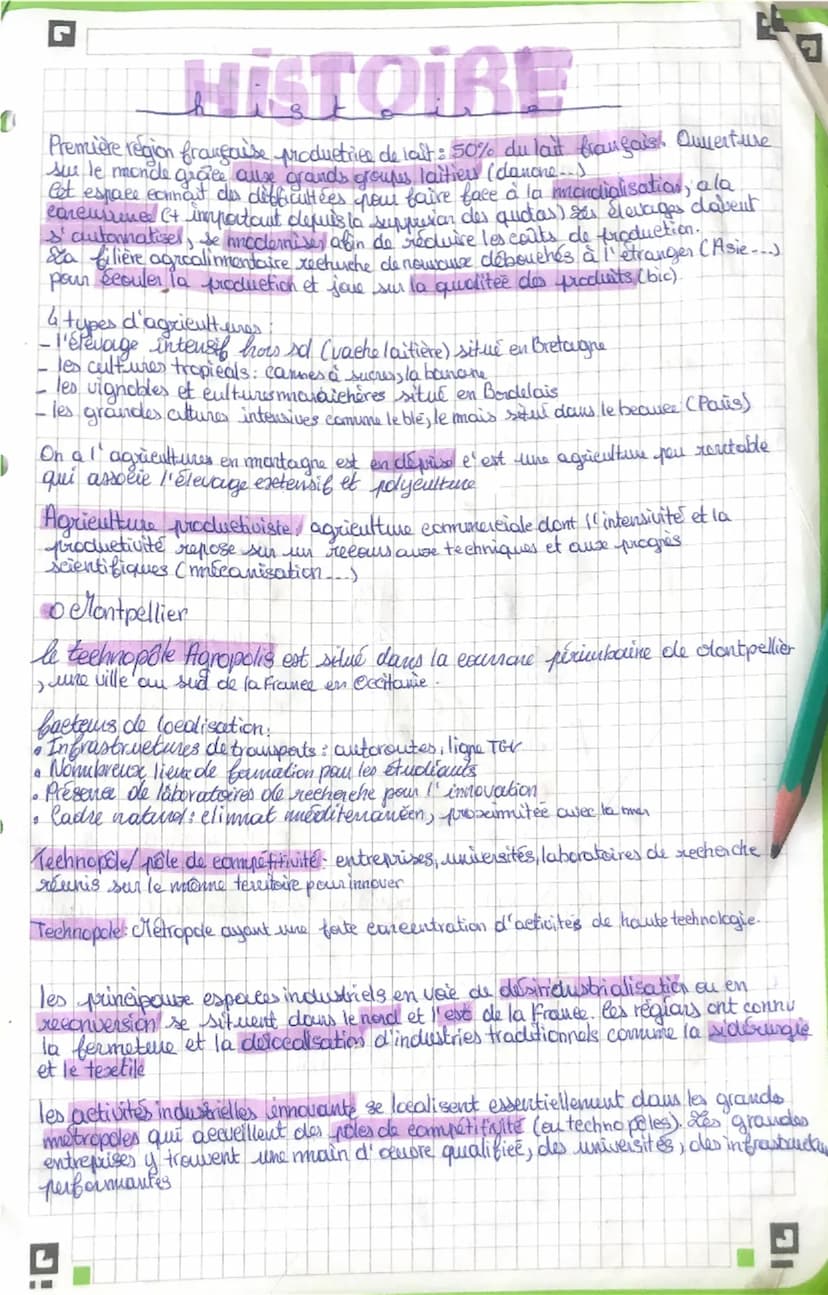 HiSTOiRE
histoire
Première région française productrice de lait : 50% du lait français. Ouverture
sur le monde grâce aux grands groupes laitiers (danone...)
Cet espace connait des difficultées pour faire face à la mondialisation, a la
concurrence (+ important depuis la suppression des quotas) Les élevages doivent
s'automatiser, se moderniser afin de réduire les coûts de production.
La filière agroalimentaire recherche de nouveaux débouchés à l'étranger (Asie...)
pour écouler la production et joue sur la qualitée des produits (bio).
4 types d'agricultures :
- l'élevage intensif hors sol (vache laitière) situé en Bretagne
- les cultures tropicals : cannes à sucres, la banane
- les vignobles et cultures maraichères situé en Bordelais
- les grandes cultures intensives comme le blé, le mais situé dans le beauce (Paris)
On a l'agricultures en montagne est en déprise c'est une agriculture peu rentable
qui associe l'élevage extensif et polyculture
Agriculture productiviste, agriculture commerciale dont l'intensivité et la
productivité repose sur un recours aux techniques et aux progrès
scientifiques (mécanisation...)
Montpellier
le technopôle Agropolis est situé dans la couronne périurbaine de Montpellier
, une ville au sud de la France en Occitanie.
facteurs de localisation:
• Infrastructures de transports : autoroutes, ligne TGV
• Nombreux lieux de formation pour les étudiants
• Présence de laboratoires de recherche pour l'innovation
• Cadre naturel : climat méditerranéen, proximitée avec la mer
Technopôle/ pôle de compétitivité : entreprises, universités, laboratoires de recherche
réunis sur le même territoire pour innover
Technopole : Métropole ayant une forte concentration d'acticités de haute technologie.
les principaux espaces industriels en voie de désindustrialisation ou en
reconversion se situent dans le nord et l'est de la France. Ces régions ont connu
la fermeture et la délocalisation d'industries traditionnels comme la sidérurgie
et le textile
les activités industrielles innovante se localisent essentiellement dans les grandes
métropoles qui accueillent des pôles de compétitivité (ou technopôles). Les grandes
entreprises y trouvent une main d'œuvre qualifiée, des universités, des infrastructu
performantes